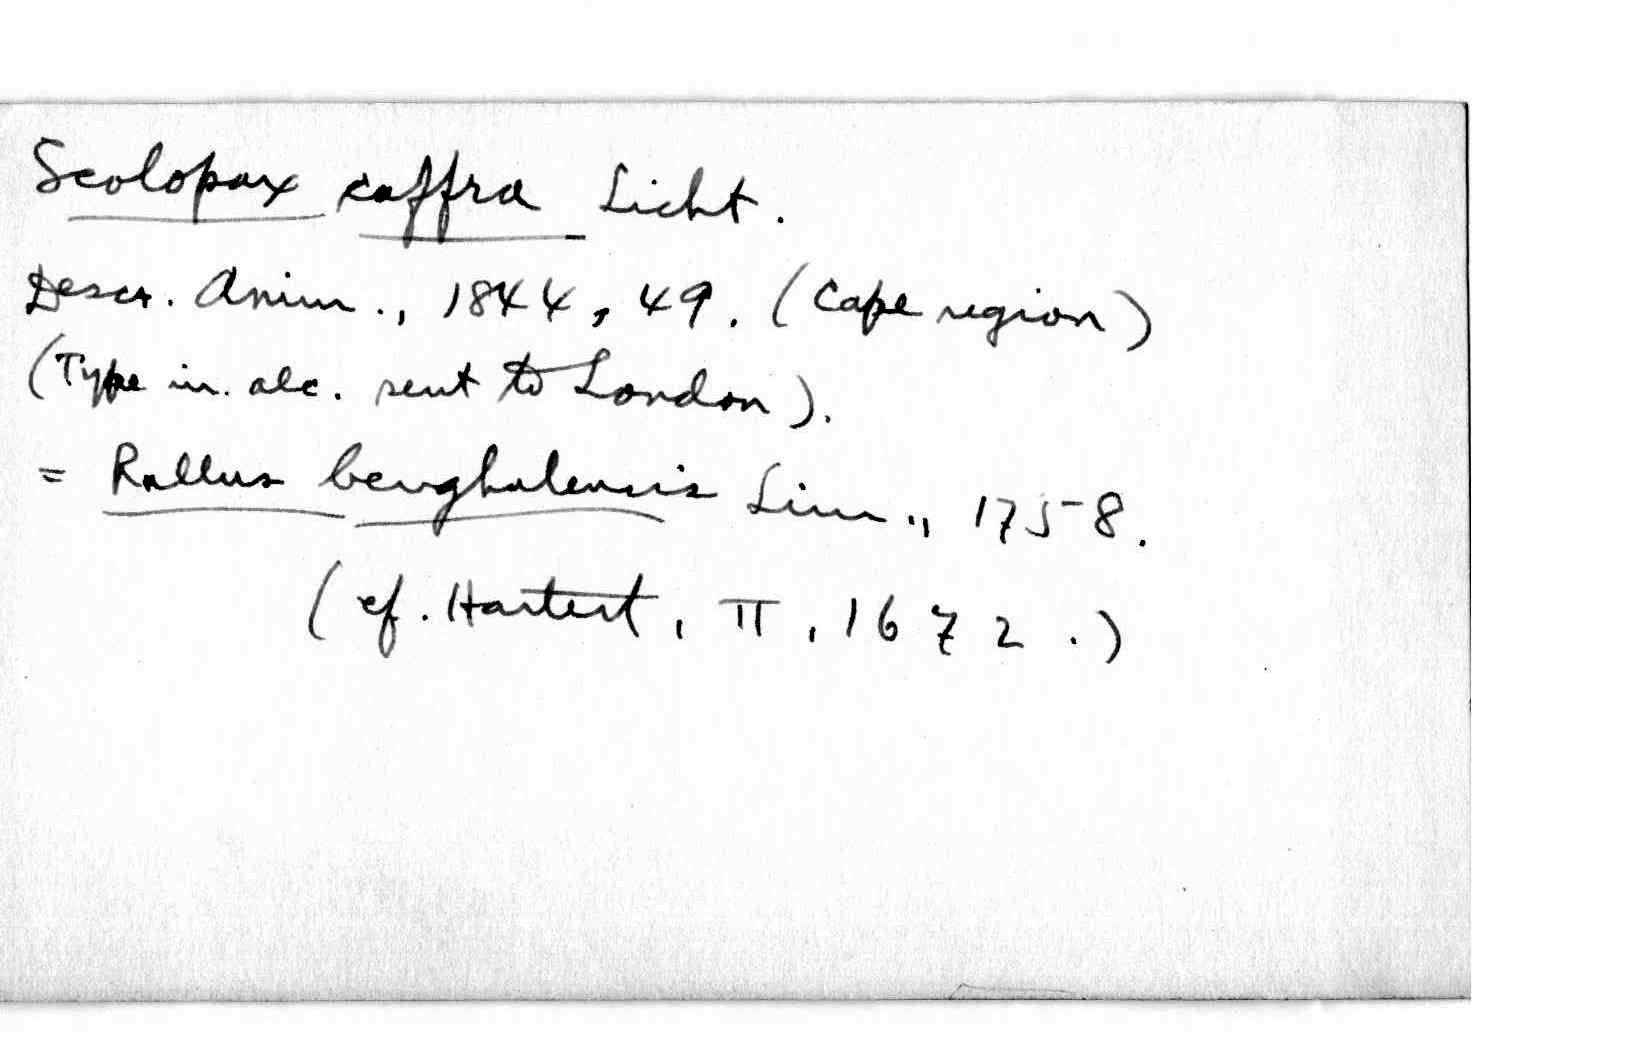 Scolopax caffra Licht.
Descr. Anim., 1844, 49. (Cape region)
(Type in. alc. sent to London).
= Rallus benghalensis Linn., 1758.
(cf. Hartert, II, 1672.)